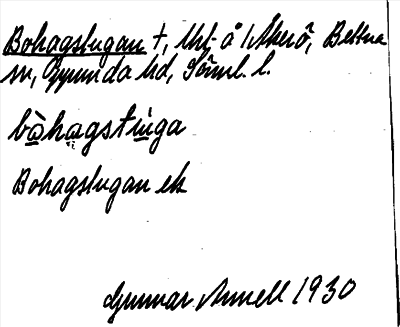 Bohagstugan †, lht å 1 Åkerö, Bettna
sn, Oppunda hd, Söml. l.
bòhagstùga
Bohagstugan ek
Gunnar Annell 1930